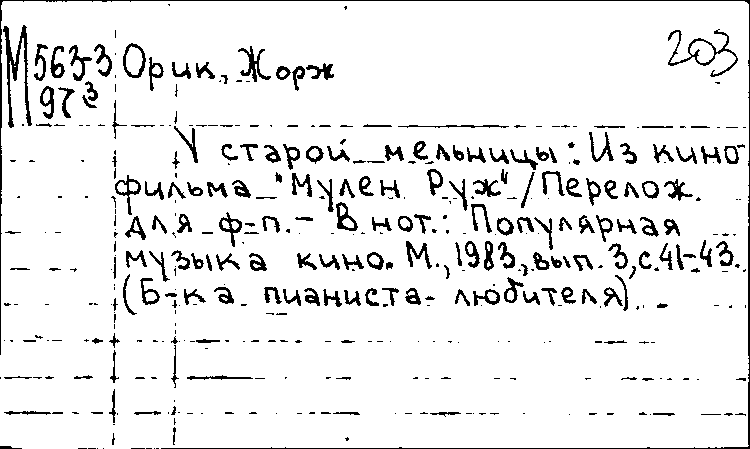 М 563-3 Орик, Жорж 203
97 э
У старой мельницы: Из кино
фильма "Мулен Руж" / Перелож.
для ф-п. - В нот.: Популярная
музыка кино. М., 1983, вып. 3, с. 41-43.
(Б-ка пианиста-любителя).